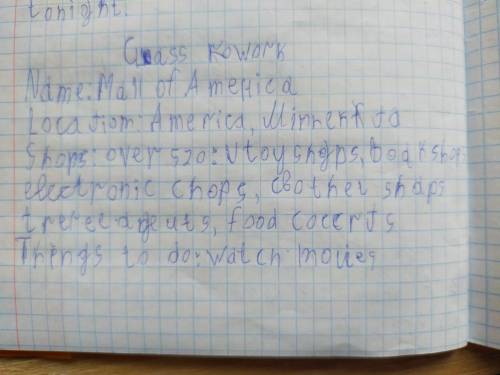 tonight.
Class rowork
Name: Mall of America
Location: America, Minnenta
Shops: over 520: toy shops, book shops
electronic chops, clother shops
food cocerts
Things to do: watch movies